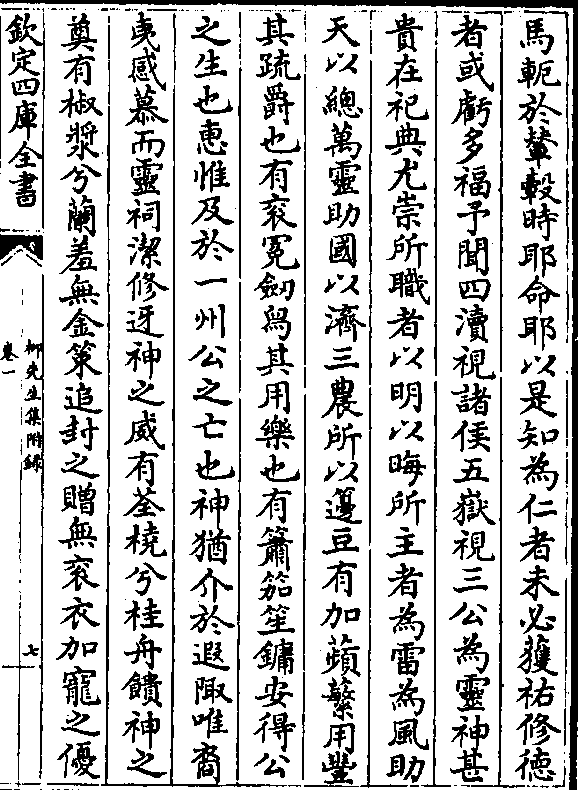 馬軛於輦轂時耶命耶以是知為仁者未必獲祐修徳
者或虧多福予聞四瀆視諸侯五嶽視三公為靈神甚
貴在祀典尤崇所職者以明以晦所主者為雷為風助
天以總萬靈助國以濟三農所以籩豆有加蘋蘩用豐
其疏爵也有衮冕劒舄其用樂也有簫笳笙鏞安得公
之生也惠惟及於一州公之亡也神猶介於遐陬唯裔
夷感慕而靈祠潔修迓神之威有荃橈兮桂舟饋神之
奠有椒漿兮蘭羞無金策追封之贈無衮衣加寵之優
欽定四庫全書
柳先生集附録
卷一
七